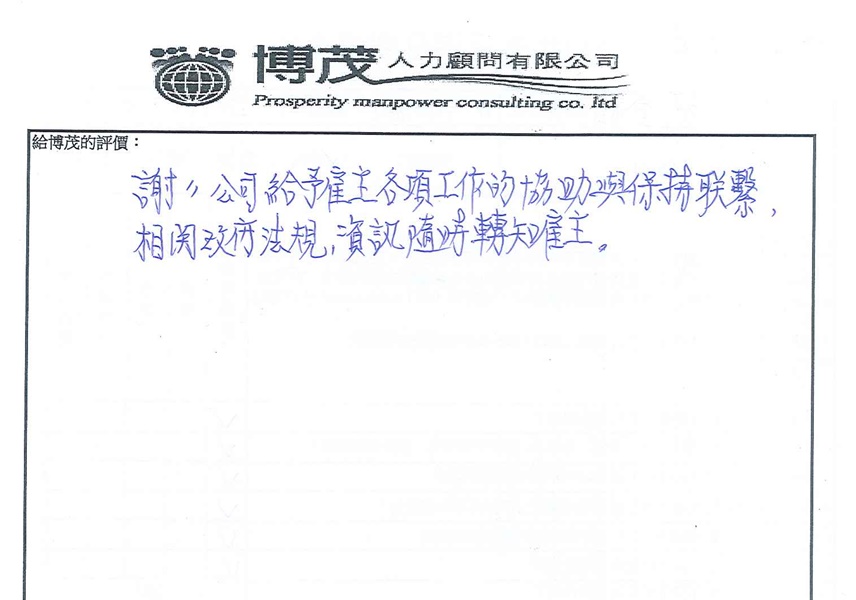 博茂人力顧問有限公司
Prosperity manpower consulting co. ltd
給博茂的評價：
謝〃公司給予雇主各項工作的協助與保持联繫，
相関政府法規，資訊隨時轉知雇主。